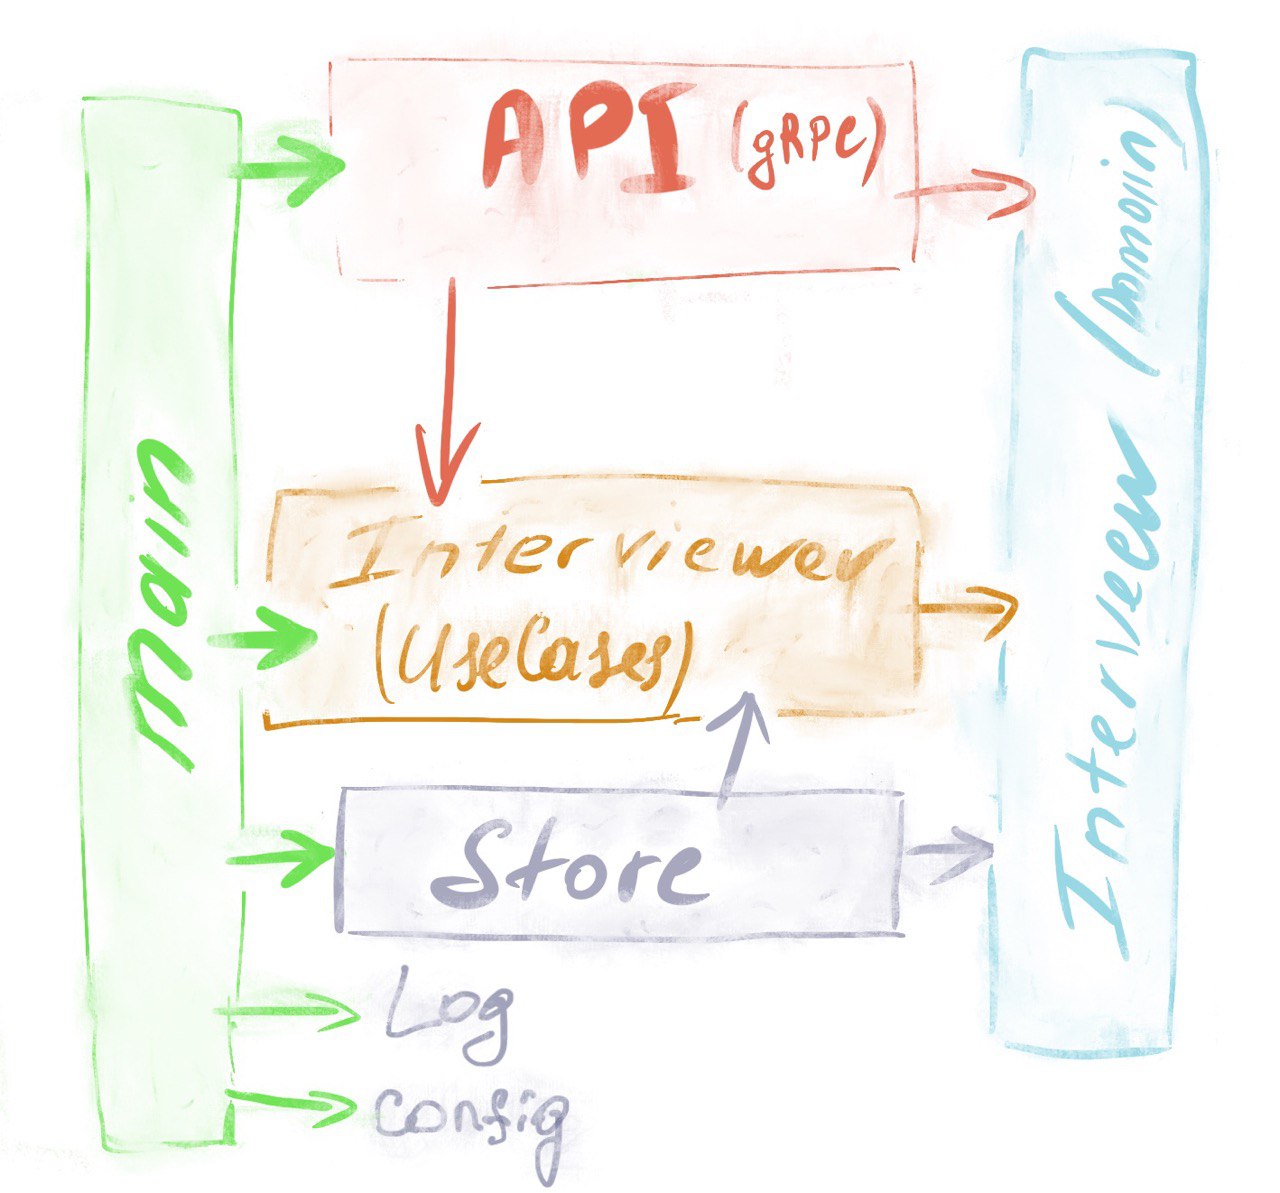 main
API (gRPC)
Interviewer
(UseCases)
Store
Log
config
Interveew (Domain)